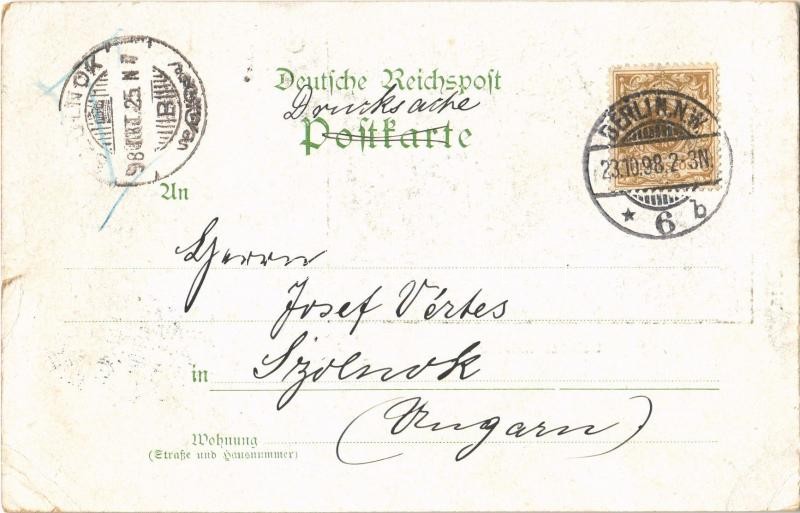 Deutsche Reichspost
Drucksache
Postkarte
BERLIN. N.W.
23.10.98.2-3N
* 6 b
98 OKT. 25 N
An
Herrn
Josef Vértes
in Szolnok
(Ungarn)
Wohnung
(Straße und Hausnummer)